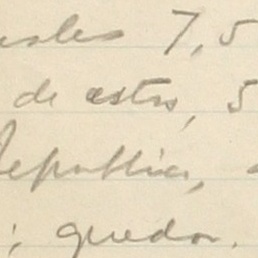 uales 7,5
de estos, 5
Republica,
; quedar.